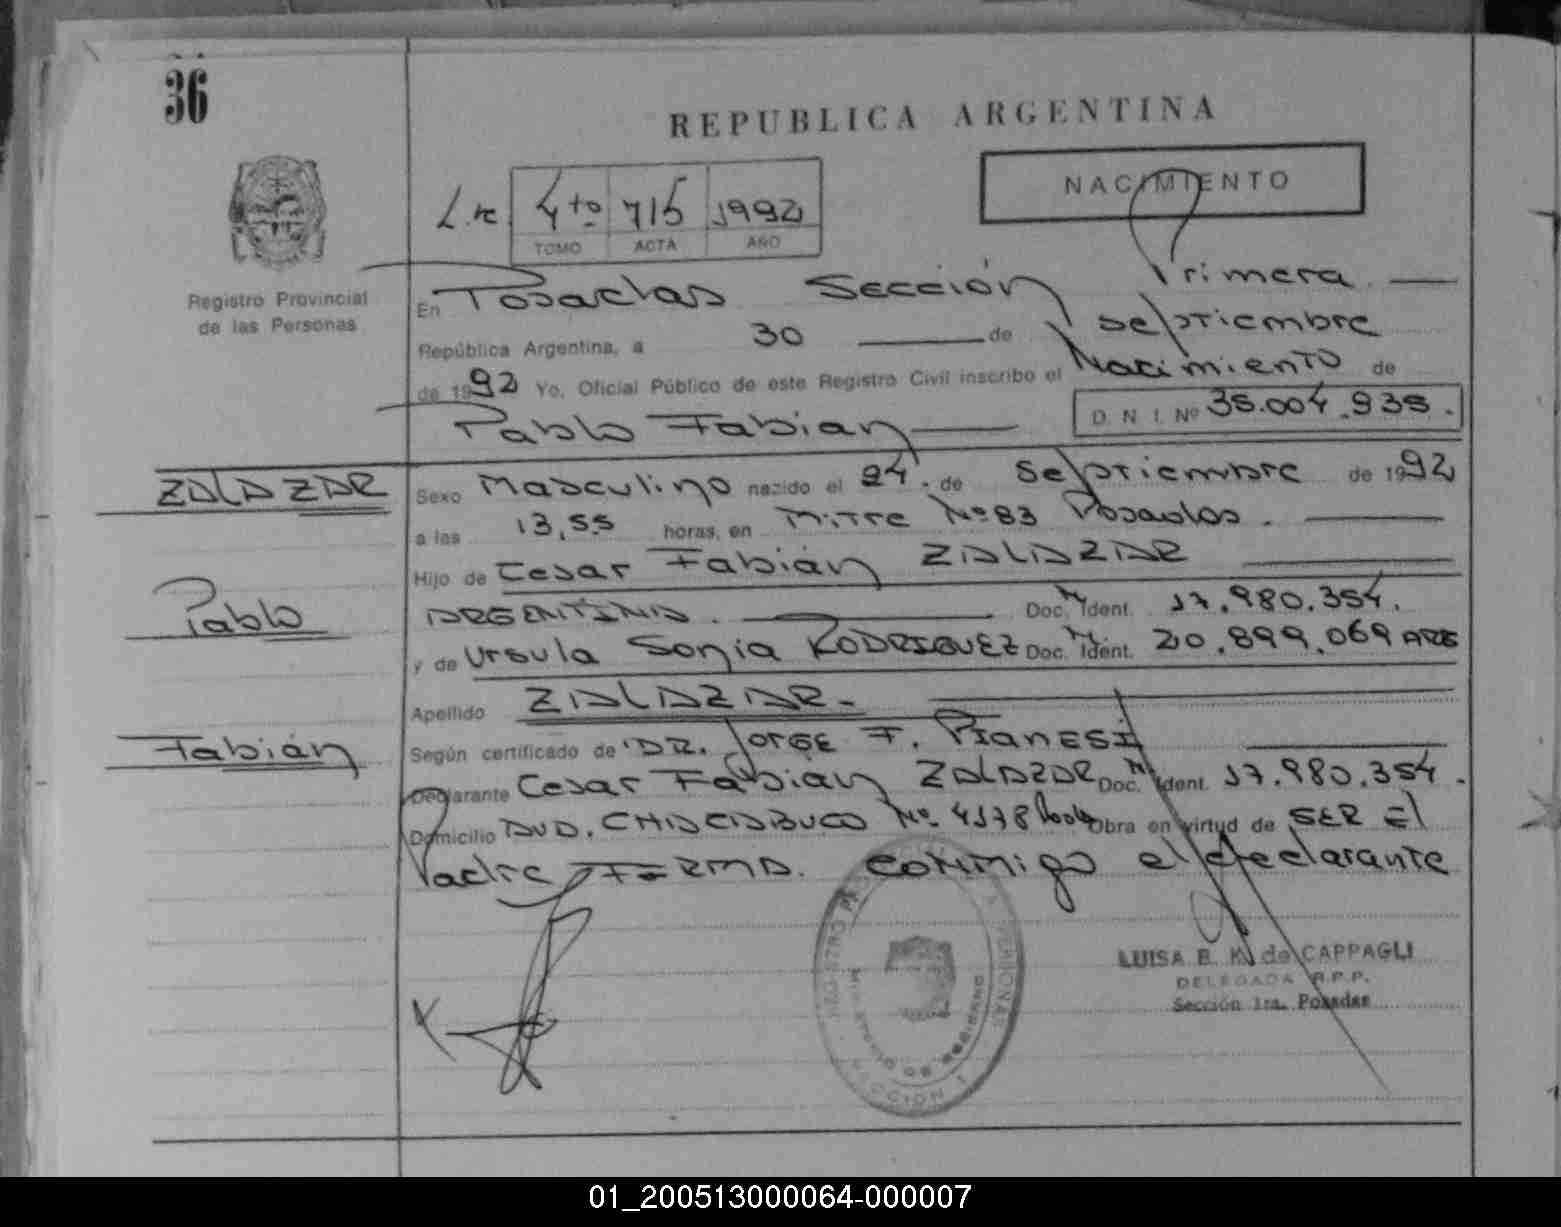 36
REPUBLICA ARGENTINA
NACIMIENTO
4to 715 1992
TOMO ACTA AÑO
Registro Provincial
de las Personas
En Posadas Sección Primera
República Argentina, a 30 de septiembre
de 1992 Yo, Oficial Público de este Registro Civil inscribo el Nacimiento de
Pablo Fabian D. N. I. Nº 35.004.935.
ZALAZAR
Sexo Masculino nacido el 24. de Septiembre de 1992
a las 13,55 horas, en Mitre Nº 83 Posadas.
Hijo de Cesar Fabián ZALAZAR
Pablo
ARGENTINO. Doc. M. Ident. 17.980.354.
y de Ursula Sonia RODRIGUEZ Doc. M. Ident. 20.899.069
Apellido ZALAZAR.-
Fabián
Según certificado de DR. Jorge F. PIANESI
Declarante Cesar Fabian ZALAZAR Doc. M. Ident. 17.980.354.
Domicilio AVD. CHACABUCO Nº 4178 Obra en virtud de SER El
Padre FIRMA. conmigo el declarante
LUISA B. K. de CAPPAGLI
DELEGADA R.P.P.
Sección 1ra. Posadas
MINISTERIO DE GOBIERNO
SECCION 1
01_200513000064-000007